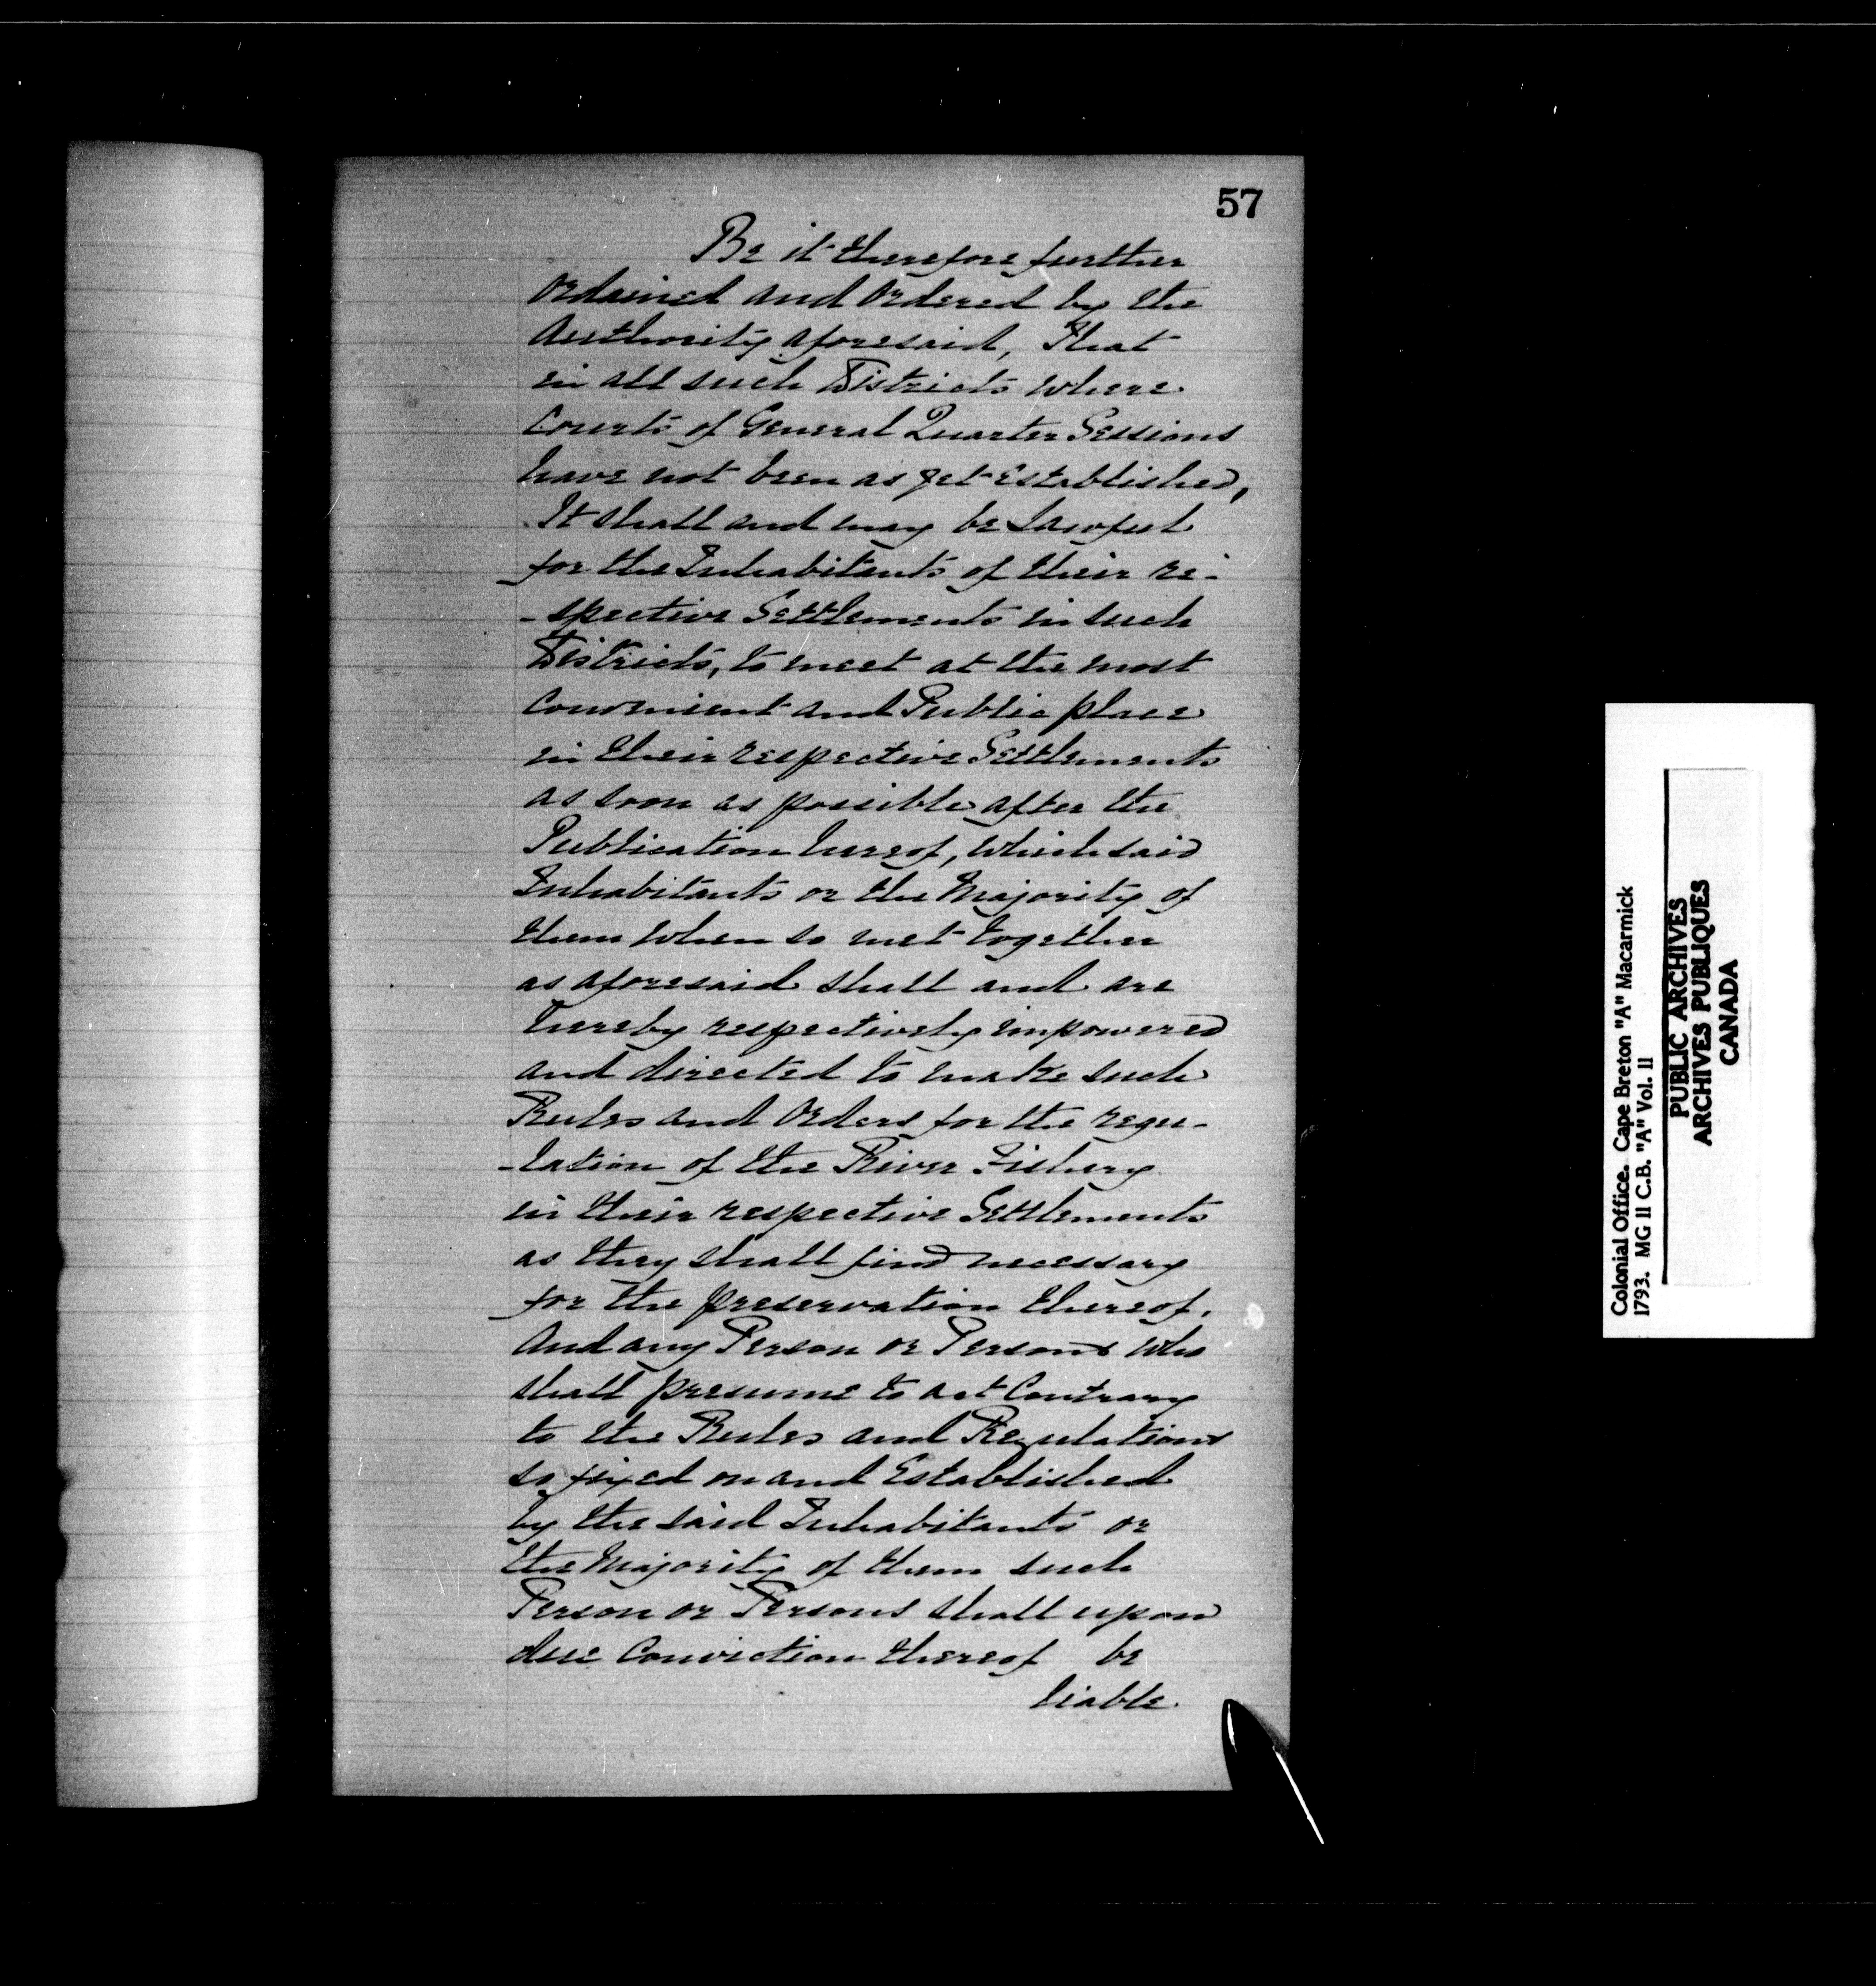 57
Be it therefore further
ordained and ordered by the
Authority aforesaid, That
in all such Districts where
Courts of General Quarter Sessions
have not been as yet Established,
It shall and may be Lawful
for the Inhabitants of their re-
-spective Settlements in such
Districts, to meet at the most
Convenient and Public place
in their respective Settlements
as soon as possible after the
Publication hereof, which said
Inhabitants or the Majority of
them when so met together
as aforesaid shall and are
hereby respectively impowered
and directed to make such
Rules and Orders for the regu-
-lation of the River Fishery
in their respective Settlements
as they shall find necessary
for the preservation thereof.
And any Person or Persons who
shall presume to act Contrary
to the Rules and Regulations
so fixed on and Established
by the said Inhabitants or
the Majority of them such
Person or Persons shall upon
due Conviction thereof be
liable.
Colonial Office. Cape Breton "A" Macarmick
1793. MG 11 C.B. "A" Vol. 11
PUBLIC ARCHIVES
ARCHIVES PUBLIQUES
CANADA